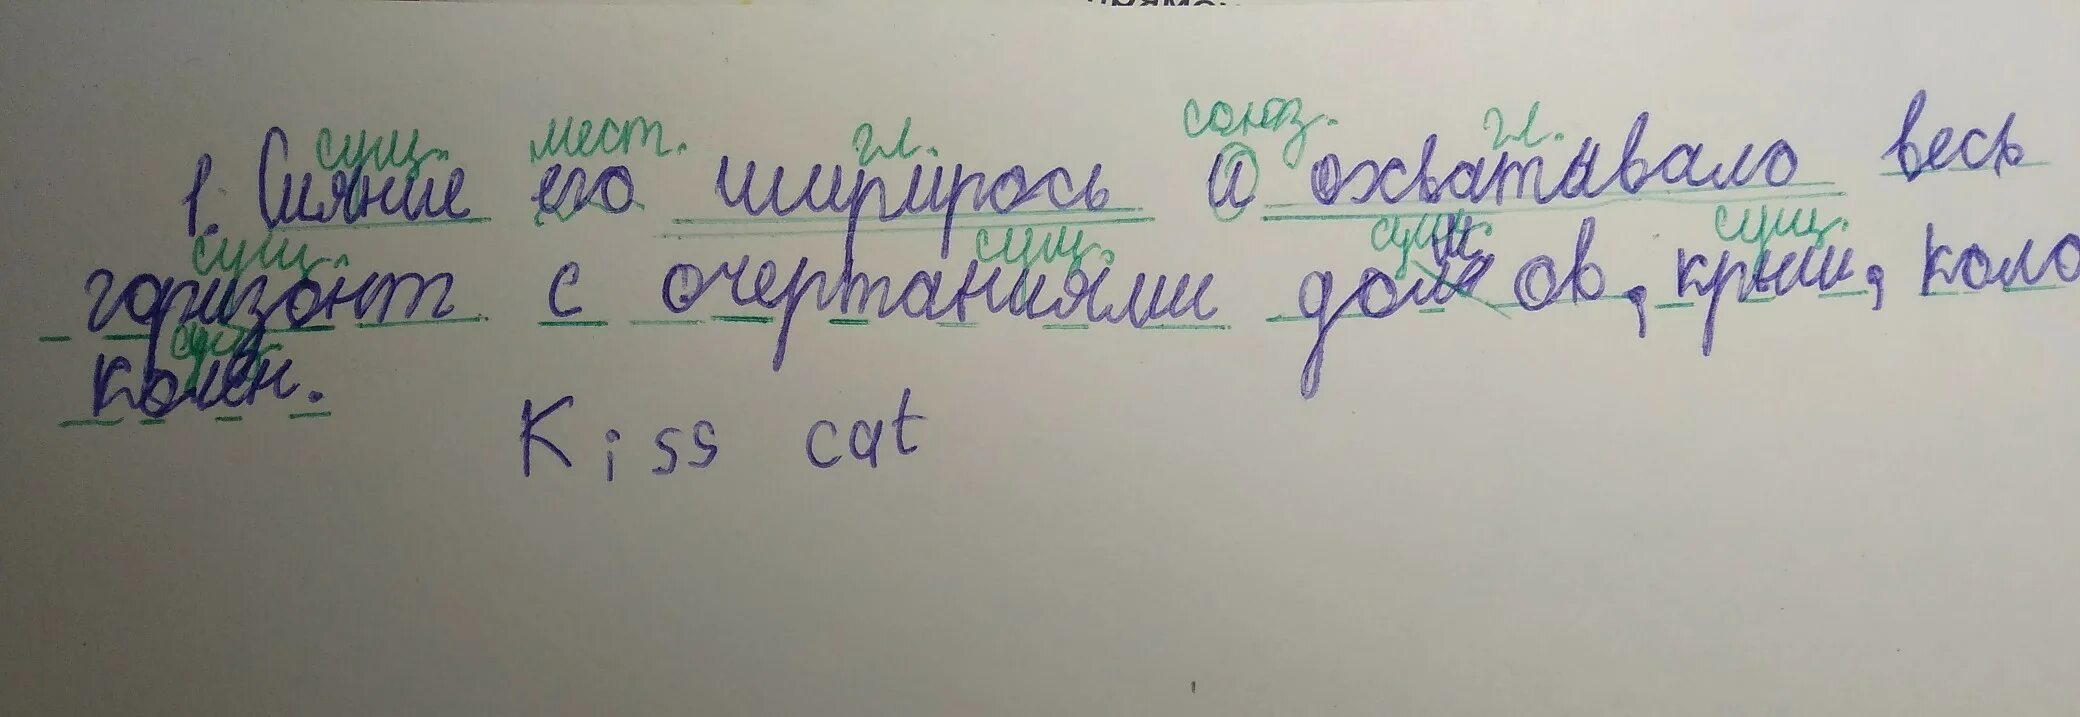 сущ. мест. гл. союз. гл.
1. Сияние его ширирось и охватывало весь
сущ. сущ. сущ. сущ.
горизонт с очертаниями домов, крыш, коло
сущ.
колен.
Kiss cat